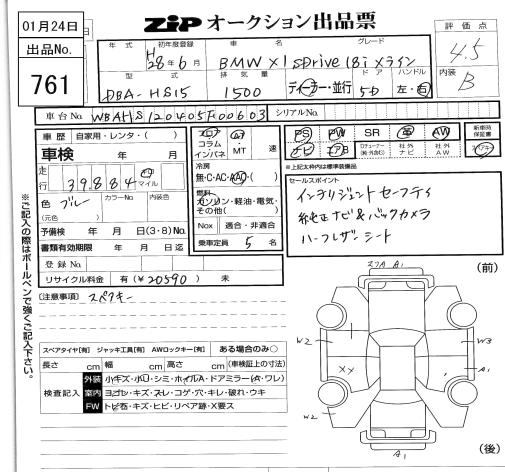 01月24日
出品No.
761
ZIP オークション出品票
評価点
4.5
内装
B
年式 初年度登録 車名 グレード
H28年6月 BMW X1 sDrive 18i Xライン
型式 排気量 ドア ハンドル
DBA-HS15 1500 ディーラー・並行 5D 左・右
車台No. WBAHS120405F00603 シリアルNo.
車歴 自家用・レンタ・( )
車検 年 月
走行 39.884 km マイル
色 ブルー カラーNo 内装色
(元色)
予備検 年 月 日(3・8)No.
書類有効期限 年 月 日迄
登録No
リサイクル料金 有(¥20590) 未
フロア コラム インパネ
AT MT 速
冷房
無・C・AC・AAC・( )
燃料
ガソリン・軽油・電気・その他( )
Nox 適合・非適合
乗車定員 5 名
PS PW SR 革 AW
ナビ エアB 社外ナビ 社外AW
新車時保証書
スペアキー
※上記太枠内は標準装備品
セールスポイント
インテリジェントセーフティ
純正ナビ&バックカメラ
ハーフレザーシート
(注意事項) スペアキー
※ご記入の際はボールペンで強くご記入下さい。
スペアタイヤ[有] ジャッキ工具[有] AWロックキー[有] ある場合のみ○
長さ cm 幅 cm 高さ cm (車検証上の寸法)
検査記入
外装 小キズ・小凹・シミ・ホイルA・ドアミラー(A・ワレ)
室内 ヨゴレ・キズ・スレ・コゲ・穴・キレ・破れ・ウキ
FW トビ石・キズ・ヒビ・リペア跡・X要ス
スリA A1
(前)
W2
W3
XX
A1
W2
A1
(後)